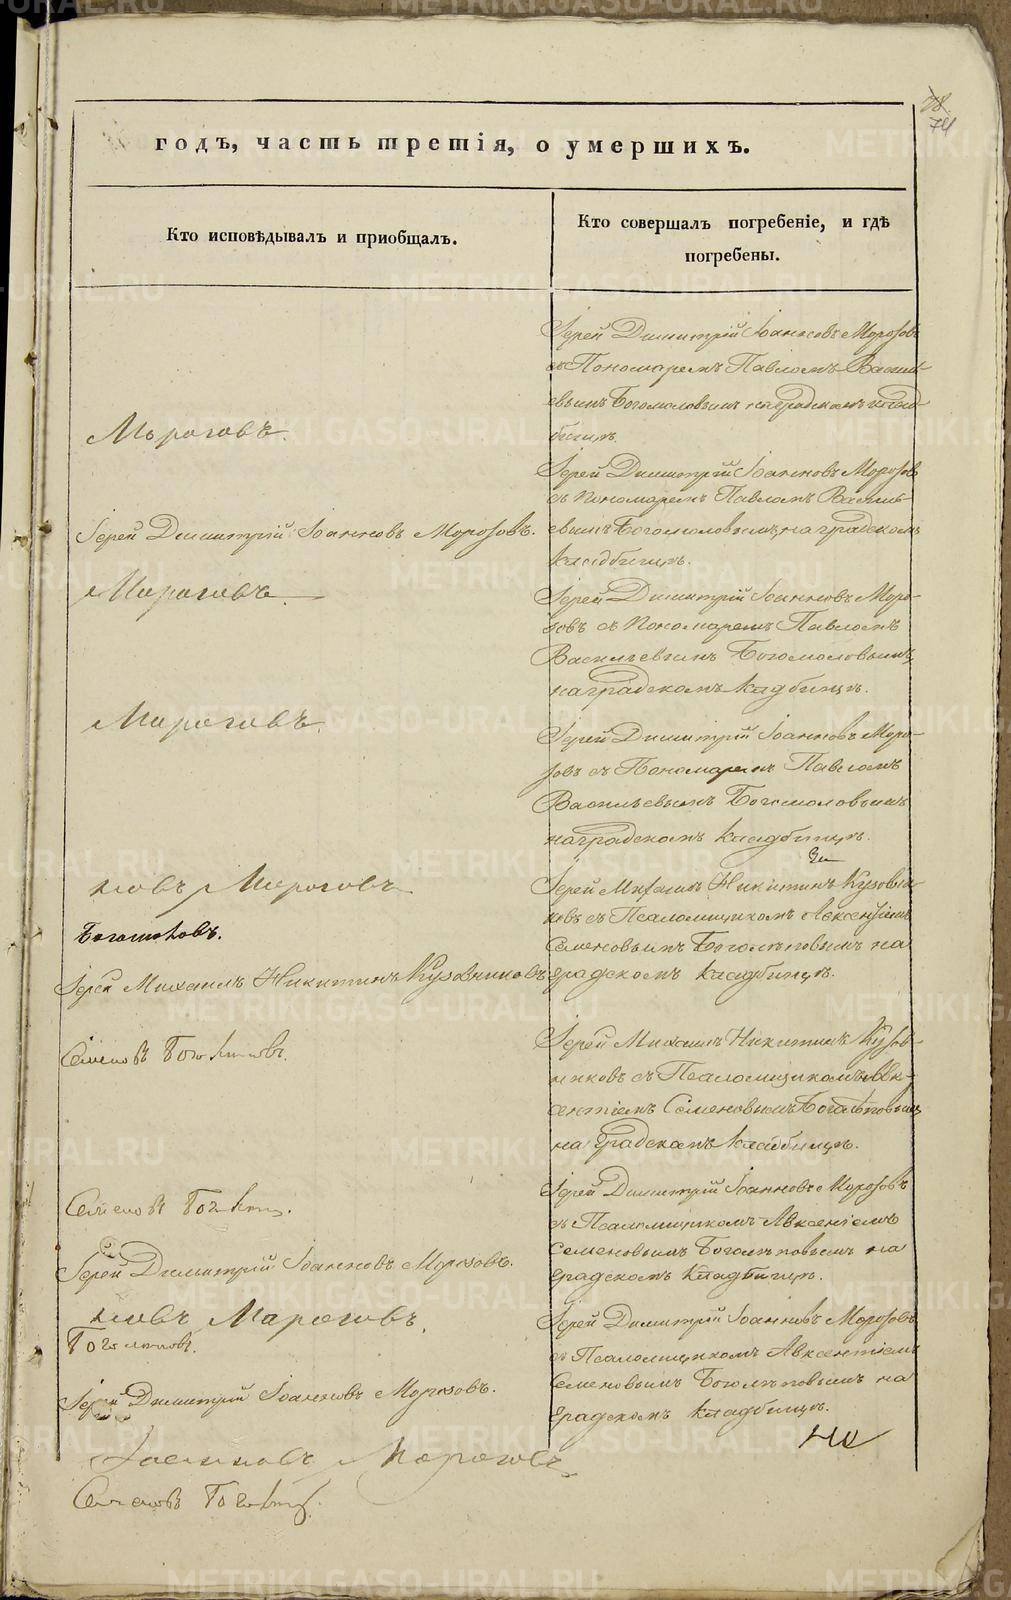 78.
74
годъ, часть третія, о умершихъ.
Кто исповѣдывалъ и приобщалъ.
Кто совершалъ погребеніе, и гдѣ
погребены.
Іерей Димитрій Іоанновъ Морозовъ
съ Пономаремъ Павломъ Василь-
евымъ Богомоловымъ на градскомъ клад-
бищѣ.
Морозовъ.
Іерей Димитрій Іоанновъ Морозовъ
съ Пономаремъ Павломъ Василь-
евымъ Богомоловымъ на градскомъ
кладбищѣ.
Іерей Димитрій Іоанновъ Морозовъ.
Морозовъ
Іерей Димитрій Іоанновъ Моро-
зовъ съ Пономаремъ Павломъ
Васильевымъ Богомоловымъ
на градскомъ кладбищѣ.
Морозовъ.
Іерей Димитрій Іоанновъ Моро-
зовъ съ Пономаремъ Павломъ
Васильевымъ Богомоловымъ
на градскомъ кладбищѣ.
новъ Морозовъ
Боголѣповъ.
Іерей Михаилъ Никитинъ Кузовни-
ковъ съ Псаломщикомъ Авксентіемъ
Семеновымъ Боголѣповымъ на
градскомъ кладбищѣ.
Іерей Михаилъ Никитинъ Кузовниковъ
Семеновъ Боголѣповъ.
Іерей Михаилъ Никитинъ Кузов-
никовъ съ Псаломщикомъ Авк-
сентіемъ Семеновымъ Боголѣповымъ
на градскомъ кладбищѣ.
Семеновъ Боголѣповъ.
Іерей Димитрій Іоанновъ Морозовъ
съ Псаломщикомъ Авксентіемъ
Семеновымъ Боголѣповымъ на
градскомъ кладбищѣ.
Іерей Димитрій Іоанновъ Морозовъ.
новъ Морозовъ.
Боголѣповъ.
Іерей Димитрій Іоанновъ Морозовъ
съ Псаломщикомъ Авксентіемъ
Семеновымъ Боголѣповымъ на
градскомъ кладбищѣ.
Іерей Димитрій Іоанновъ Морозовъ.
Іоанновъ Морозовъ
Семеновъ Боголѣповъ.
METRIKI.GASO-URAL.RU